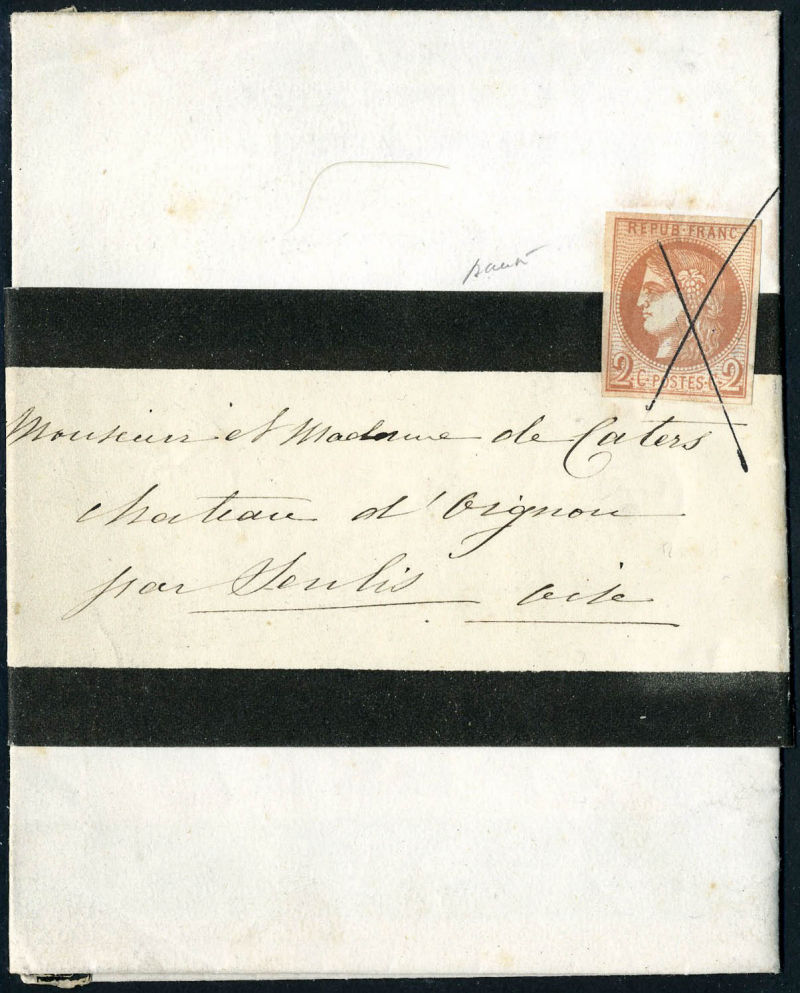 REPUB·FRANC
2·C·POSTES·C·2
Monsieur et Madame de Caters
chateau d'Oignon
par Senlis oise